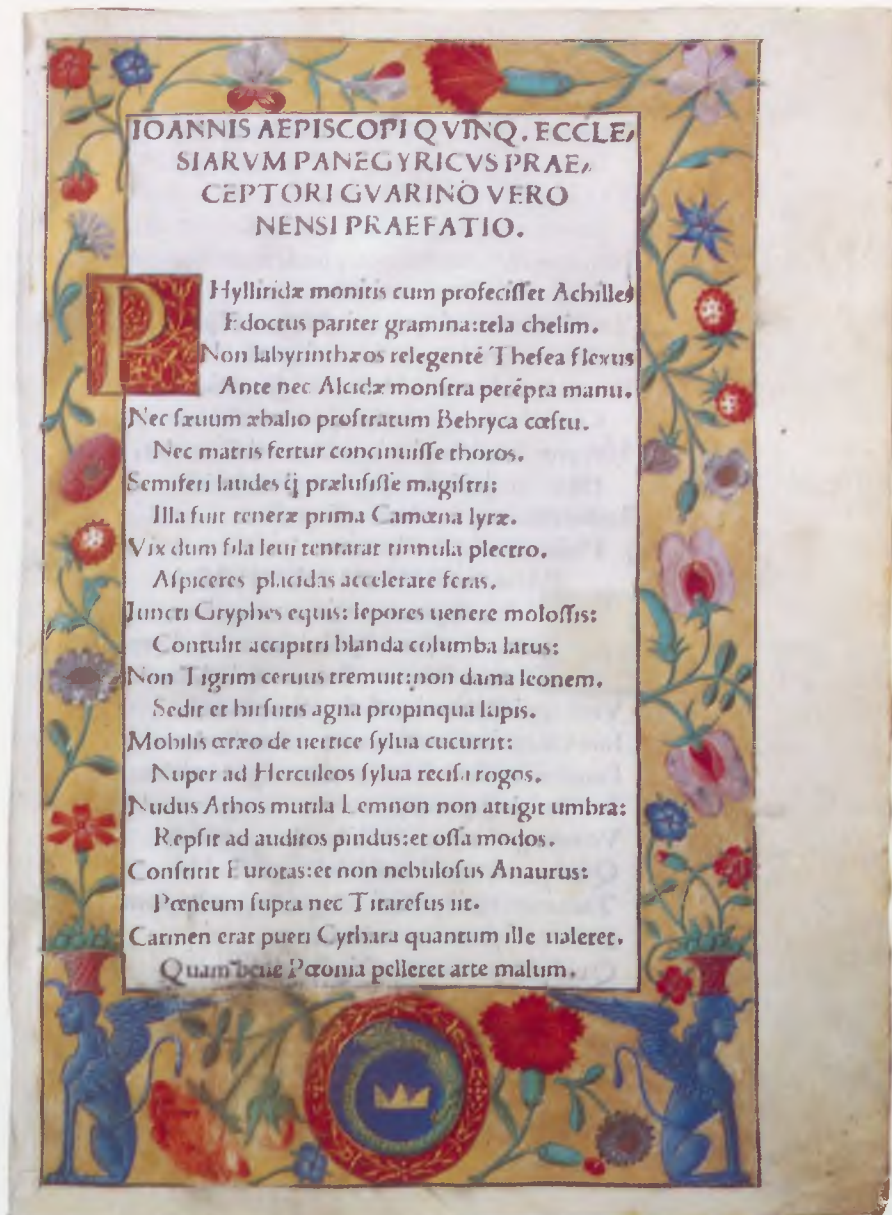 IOANNIS AEPISCOPI QVINQ. ECCLE,
SIARVM PANEGYRICVS PRAE,
CEPTORI GVARINO VERO
NENSI PRAEFATIO.
PHylliridæ monitis cum profecisset Achilles
Edoctus pariter gramina:tela chelim.
Non labyrinthæos relegentē Thesea flexus
Ante nec Alcidæ monstra perēpta manu.
Nec sæuum æbalio prostratum Bebryca cæstu.
Nec matris fertur concinuisse thoros.
Semiferi laudes ꝗ prælusisse magistri:
Illa fuit teneræ prima Camœna lyræ.
Vix dum fila leui tentarat tinnula plectro.
Aspiceres placidas accelerare feras.
Iuncti Gryphes equis: lepores uenere molossis:
Contulit accipitri blanda columba latus:
Non Tigrim ceruus tremuit:non dama leonem.
Sedit et hirsutis agna propinqua lupis.
Mobilis œtæo de uertice sylua cucurrit:
Nuper ad Herculeos sylua recisa rogos.
Nudus Athos mutila Lemnon non attigit umbra:
Repsit ad auditos pindus:et ossa modos.
Constitit Eurotas:et non nebulosus Anaurus:
Pœneum supra nec Titaresus iit.
Carmen erat pueri Cythara quantum ille ualeret.
Quam bene Pœonia pelleret arte malum.